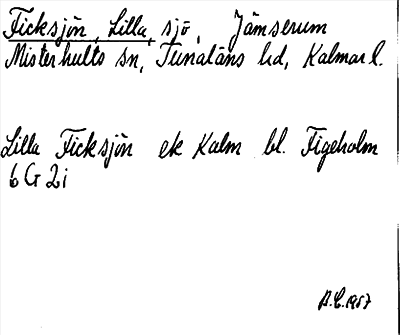 Ficksjön, Lilla, sjö, Jämserum
Misterhults sn, Tunaläns hd, Kalmar l.
Lilla Ficksjön ek Kalm bl. Figeholm
6 G 2 i
B.C. 1957